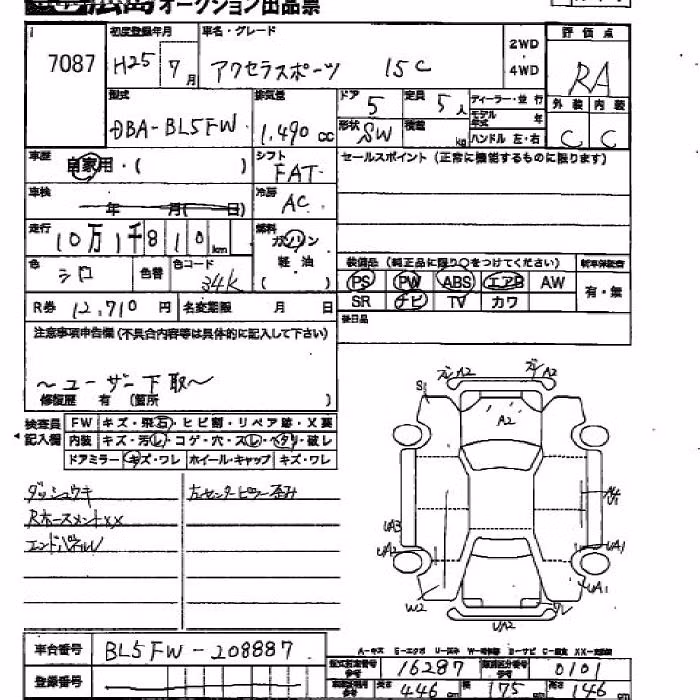 オークション出品票
7087
初度登録年月 車名・グレード 2WD ・ 4WD 評価点
H25 7月 アクセラスポーツ 15C RA
型式 排気量 ドア 5 定員 5人 ディーラー・並行 外装 内装
DBA-BL5FW 1,490cc 形状 SW 積載 kg モデル年式 年 ハンドル 左・右 C C
車歴 自家用・( ) シフト FAT セールスポイント (正常に機能するものに限ります)
車検 年 月( 日) 冷房 AC
走行 10万1千810km 燃料 ガソリン 軽油 ( )
装備品 (純正品に限り○をつけてください) 新車保証書
色 シロ 色替 色コード 34K
PS PW ABS エアB AW 有・無
SR ナビ TV カワ
R券 12,710円 名変期限 月 日
後日品
注意事項申告欄(不具合内容等は具体的に記入して下さい)
~ユーザー下取~
修復歴 有 (箇所 )
検査員記入欄 FW キズ・飛石・ヒビ割・リペア跡・X要
内装 キズ・汚レ・コゲ・穴・スレ・ヘタリ・破レ
ドアミラー キズ・ワレ ホイール・キャップ キズ・ワレ
ダッシュウキ 左センターピラー歪み
RホースメントXX
エンドパネル
A2 A2
S
A2
UA3 UA2 UA1 UA1
W2 UA2
車台番号 BL5FW-208887
登録番号
型式指定番号 参考 16287 類別区分番号 参考 0101
参考 長さ 446cm 幅 175cm 高さ 146cm